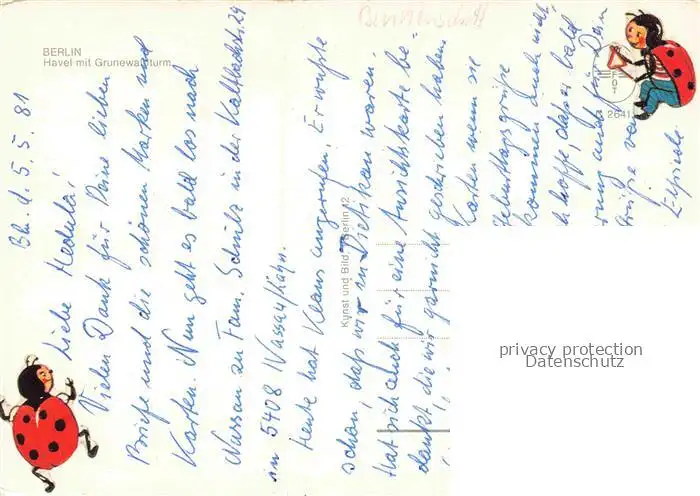 BERLIN
Havel mit Grunewaldturm
Bln. d. 5.5.81
Liebe Hedula!
Vielen Dank für Deine lieben
Briefe und die schönen Marken und
Karten. Nun geht es bald los nach
Nassau zu Fam. Schulz in der Kaltbachstr. 29
in 5408 Nassau/Lahn.
Heute hat Klaus angerufen. Er wußte
schon, daß wir in Dietikon waren.
Hat sich auch für eine Ansichtskarte be-
dankt die wir garnicht geschrieben haben.
Karten wenn sie
Geburtstagsgrüße
kommen auch nicht
hoffe, daß er bald
auch für Dann
Grüße von
Kunst und Bild, Berlin 12
2641
privacy protection
Datenschutz